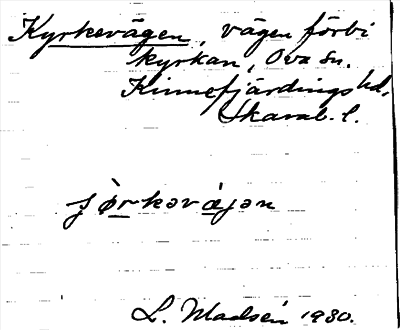 Kyrkevägen, vägen förbi
kyrkan, Ova sn.
Kinnefjärdings hd,
Skarab. l.
L. Madsén 1930.